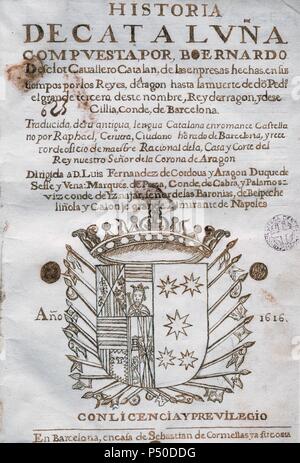 HISTORIA
DE CATALVÑA
COMPVESTA, POR, BOERNARDO
Desclot Cavallero Catalan, de las empresas hechas, en sus
tiempos por los Reyes, de Aragon hasta la muerte de dō Pedr
el grande tercero deste nombre, Rey de rragon, y de se
Cillia, Conde, de Barcelona.
Traducida, de su antigua, lengua Catalana en romance Castella
no por Raphael, Cervera, Ciudano hōrado de Barcelona, y re
tor de oficio de maestre Racional de la, Casa y Corte del
Rey nuestro Señor de la Corona de Aragon
Dirigida a D. Luis Fernandez de Cordoua y Aragon Duque de
Sesse y Vena: Marques de Poza, Conde de Cabra, y Palamos z
viz conde de Yznajar, señor de las Baronias, de Belpeche
liñola y Calonje gran Almirante de Napoles
Año 1616.
CON LICENCIA Y PREVILEGIO
En Barcelona, en casa de Sebastian de Cormellas y a su costa
alamy
P50DDG